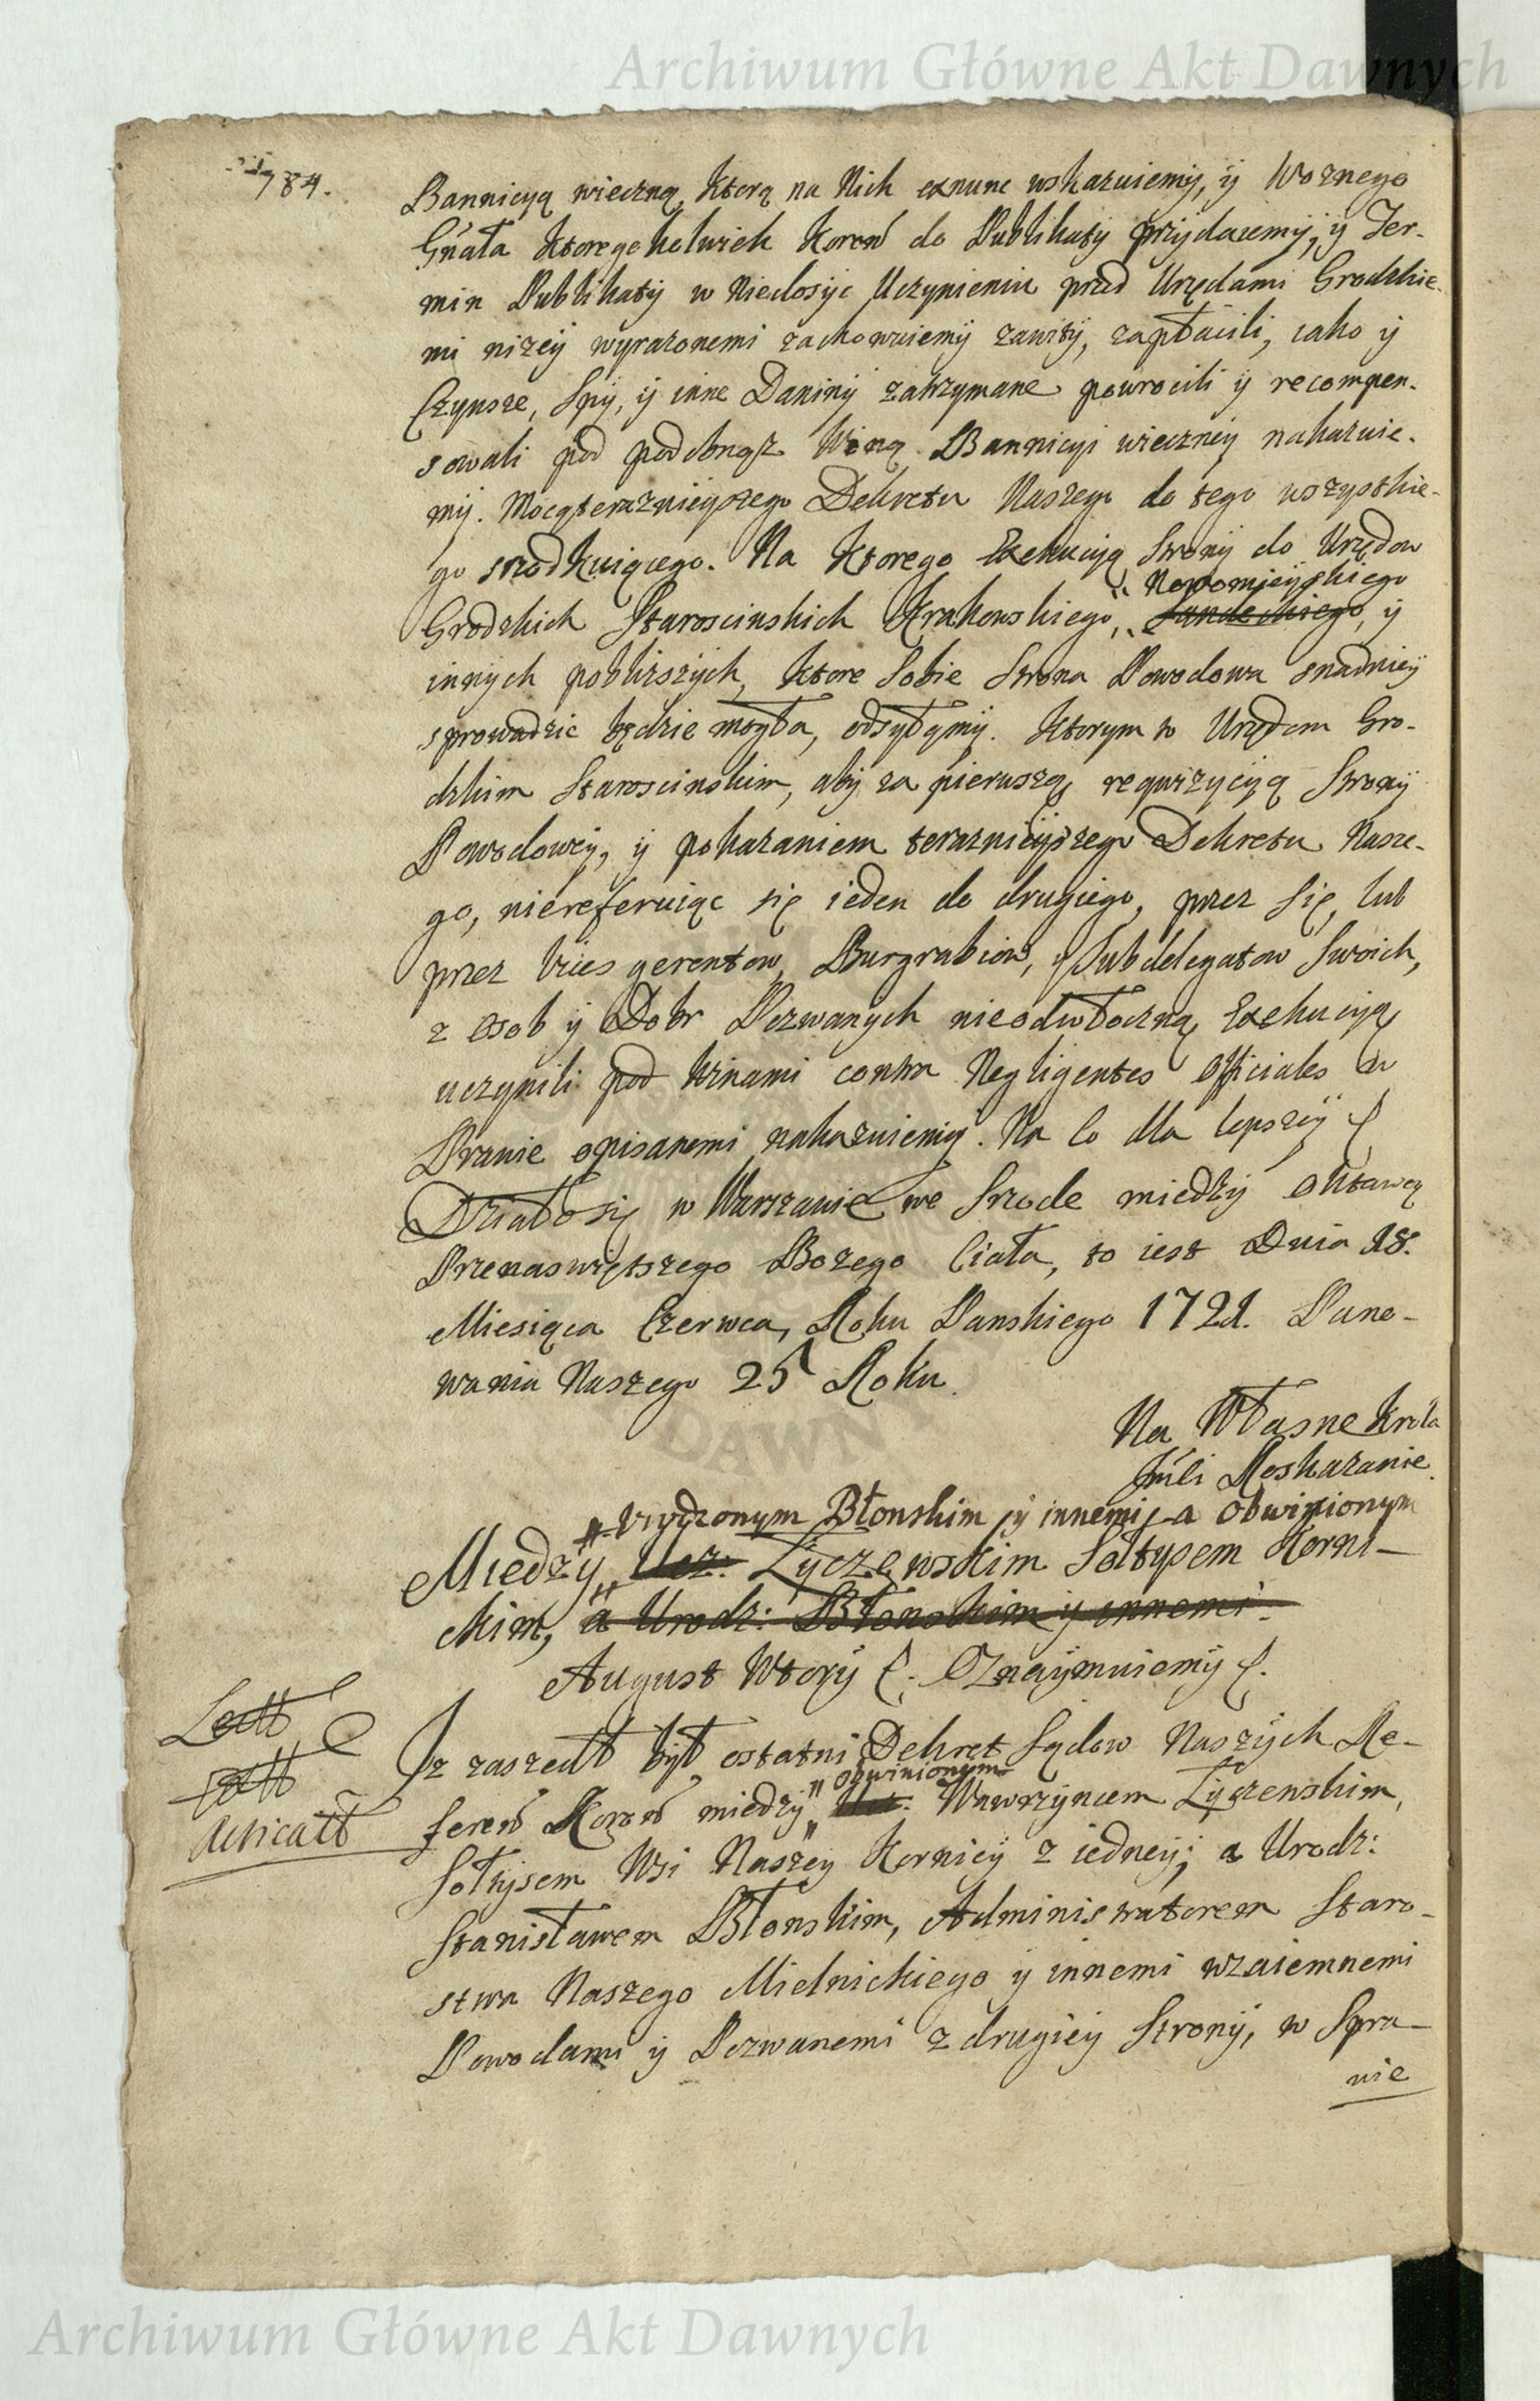 Archiwum Główne Akt Dawnych
784.
Bannicyą wieczną, ktorą na Nich exnunc wskazuiemy, ÿ Woznego
Gnała ktoregokolwiek Koron do Publikaty przydaiemÿ, ÿ Ter-
min Publikatÿ w Niedosÿc Uczynieniu przed Urzędami Grodzkie-
mi niżeÿ wyrażonemi zachowuiemÿ zawitÿ, zapłacili, iako ÿ
Czynsze, Spÿ, ÿ inne Daninÿ zatrzymane powrocili ÿ recompen-
sowali pod podobnąż Winą Bannicyi wieczneÿ nakazuie-
mÿ. Mocą terazniejszego Dekretu Naszego do tego wszystkie-
go srzodkuiącego. Na ktorego Exekucyą Stronÿ do Urzędow
Nowomieÿskiego
Grodzkich Staroscinskich Krakowskiego, Sandeckiego, ÿ
innych poblizszÿch, ktore Sobie Strona Powodowa snadnieÿ
sprowadzic będzie mogła, odsyłamÿ. Ktorym to Urzędom Gro-
dzkim Staroscinskim, abÿ za pierwszą requizycÿą Stronÿ
Powodoweÿ, ÿ pokazaniem teraznieÿszego Dekretu Nasze-
go, niereferuiąc się ieden do drugiego, przez się, lub
przez Vices gerentow, Burgrabiow, ÿ Subdelegatow Swoich,
z Osob ÿ Dobr Pozwanych nieodwłoczną Exekucyą
uczynili pod Winami contra Negligentes Officiales w
Prawie opisanemi nakazuiemÿ. Na Co dla lepszeÿ
Działo się w Warszawie we Srzode między Oktawą
Przenaswiętszego Bozego Ciała, to iest Dnia 18.
Miesiąca Czerwca, Roku Panskiego 1721. Pano-
wania Naszego 25 Roku.
Na Własne Krola
Jmci Roskazanie.
Urodzonym Błonskim ÿ innemi, a obwinionym
Miedzy Ucz: Zyczewskim Sołtysem Korni-
ckim, a Urodz: Błonskim y innemi.
August Wtorÿ Oznaÿmuiemÿ
Iz zaszedł był ostatni Dekret Sądow Naszÿch Re-
obwinionym
feren Koron miedzÿ Wawrzyncem Zyczenskim,
Sołtÿsem Wsi Naszeÿ Kornicÿ z iedneÿ; a Urodz:
Stanisławem Błonskim, Administratorem Staro-
stwa Naszego Mielnickiego ÿ innemi wzaiemnemi
Powodami ÿ Pozwanemi z drugieÿ Stronÿ, w Spra-
wie
Archiwum Główne Akt Dawnych